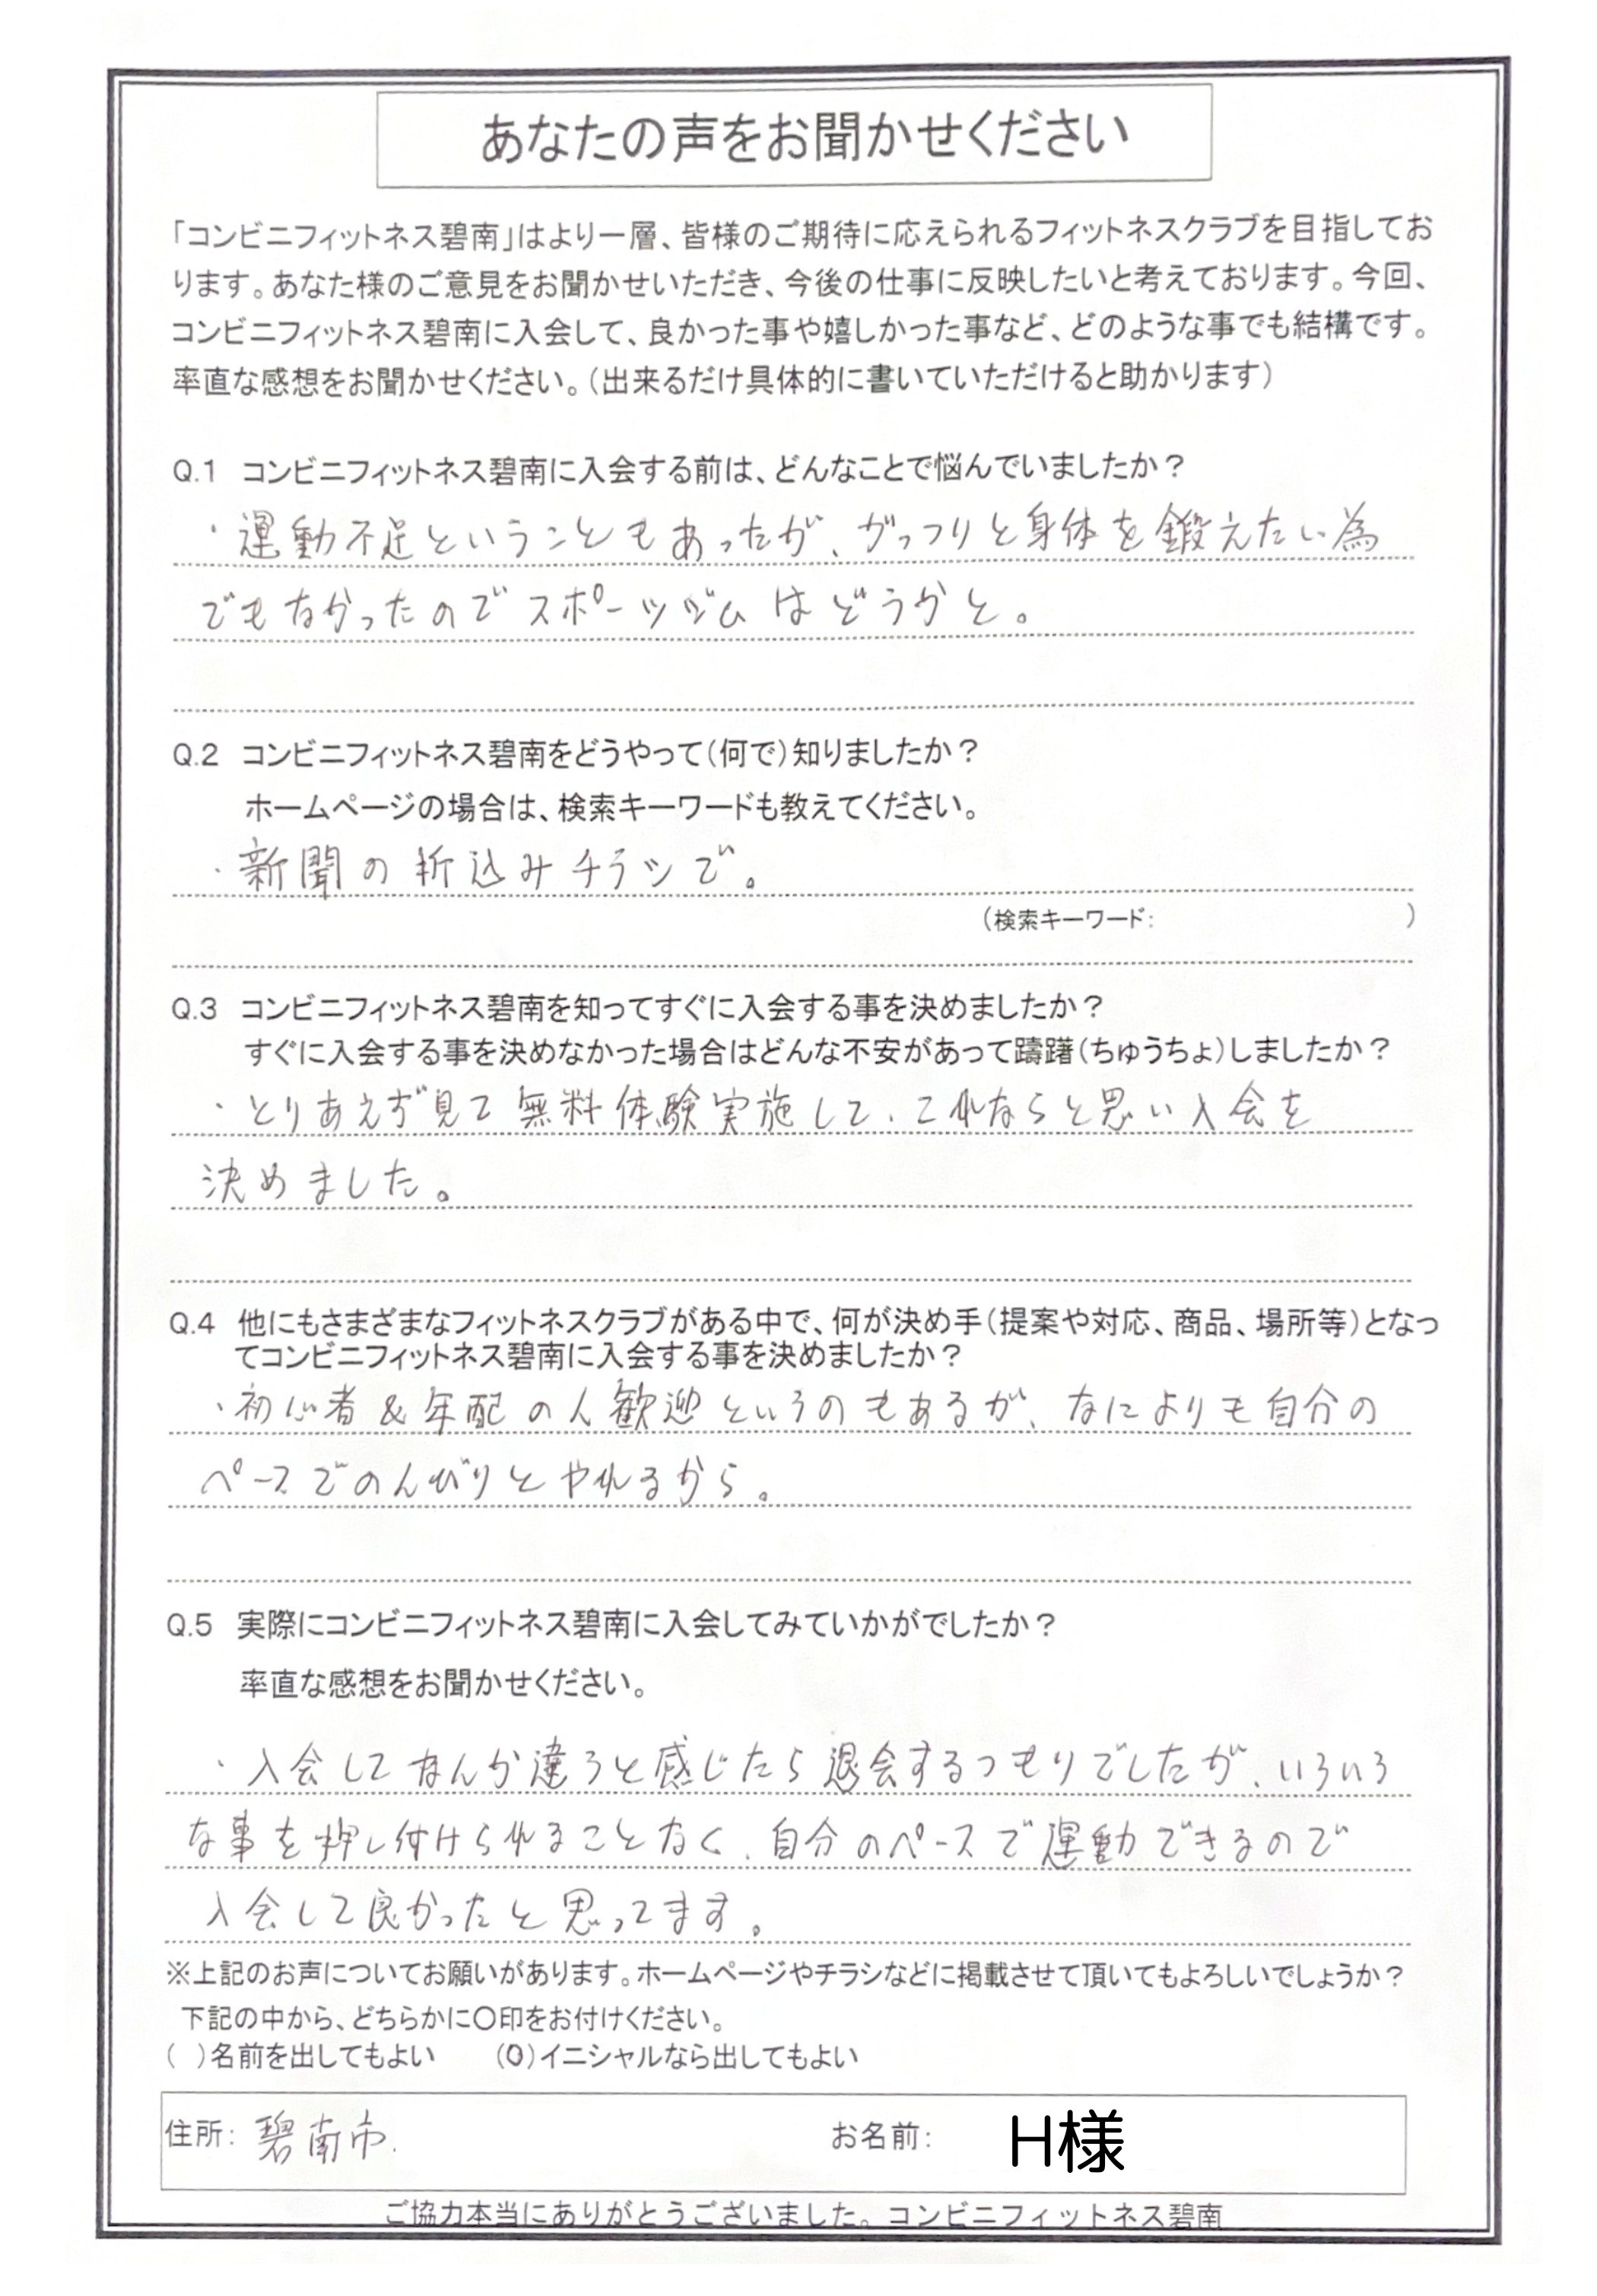 あなたの声をお聞かせください
「コンビニフィットネス碧南」はより一層、皆様のご期待に応えられるフィットネスクラブを目指してお
ります。あなた様のご意見をお聞かせいただき、今後の仕事に反映したいと考えております。今回、
コンビニフィットネス碧南に入会して、良かった事や嬉しかった事など、どのような事でも結構です。
率直な感想をお聞かせください。(出来るだけ具体的に書いていただけると助かります)
Q.1 コンビニフィットネス碧南に入会する前は、どんなことで悩んでいましたか?
・運動不足ということもあったが、がっつりと身体を鍛えたい為
でもなかったのでスポーツジムはどうかと。
Q.2 コンビニフィットネス碧南をどうやって(何で)知りましたか?
ホームページの場合は、検索キーワードも教えてください。
・新聞の折込みチラシで。
(検索キーワード: )
Q.3 コンビニフィットネス碧南を知ってすぐに入会する事を決めましたか?
すぐに入会する事を決めなかった場合はどんな不安があって躊躇(ちゅうちょ)しましたか?
・とりあえず見て無料体験実施して、これならと思い入会を
決めました。
Q.4 他にもさまざまなフィットネスクラブがある中で、何が決め手(提案や対応、商品、場所等)となっ
てコンビニフィットネス碧南に入会する事を決めましたか?
・初心者&年配の人歓迎というのもあるが、なによりも自分の
ペースでのんびりとやれるから。
Q.5 実際にコンビニフィットネス碧南に入会してみていかがでしたか?
率直な感想をお聞かせください。
・入会してなんか違うと感じたら退会するつもりでしたが、いろいろ
な事を押し付けられることなく、自分のペースで運動できるので
入会して良かったと思ってます。
※上記のお声についてお願いがあります。ホームページやチラシなどに掲載させて頂いてもよろしいでしょうか?
下記の中から、どちらかに〇印をお付けください。
( )名前を出してもよい (O)イニシャルなら出してもよい
住所: 碧南市. お名前: H様
ご協力本当にありがとうございました。コンビニフィットネス碧南